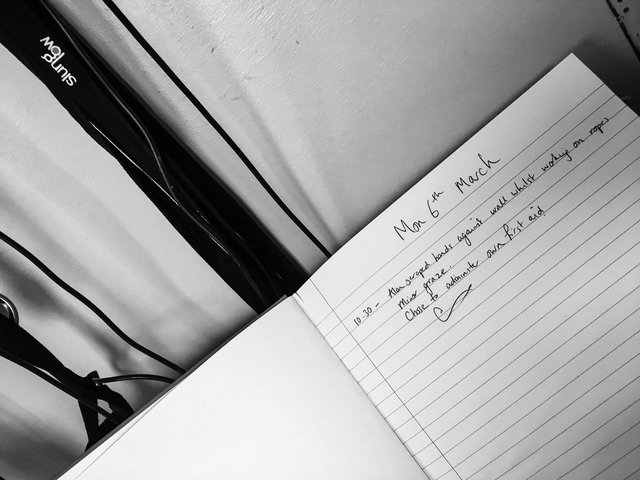 slung
low
Mon 6th March
10.30 - Alan scraped hands against wall whilst working on ropes
Minor graze.
Chose to administer own first aid